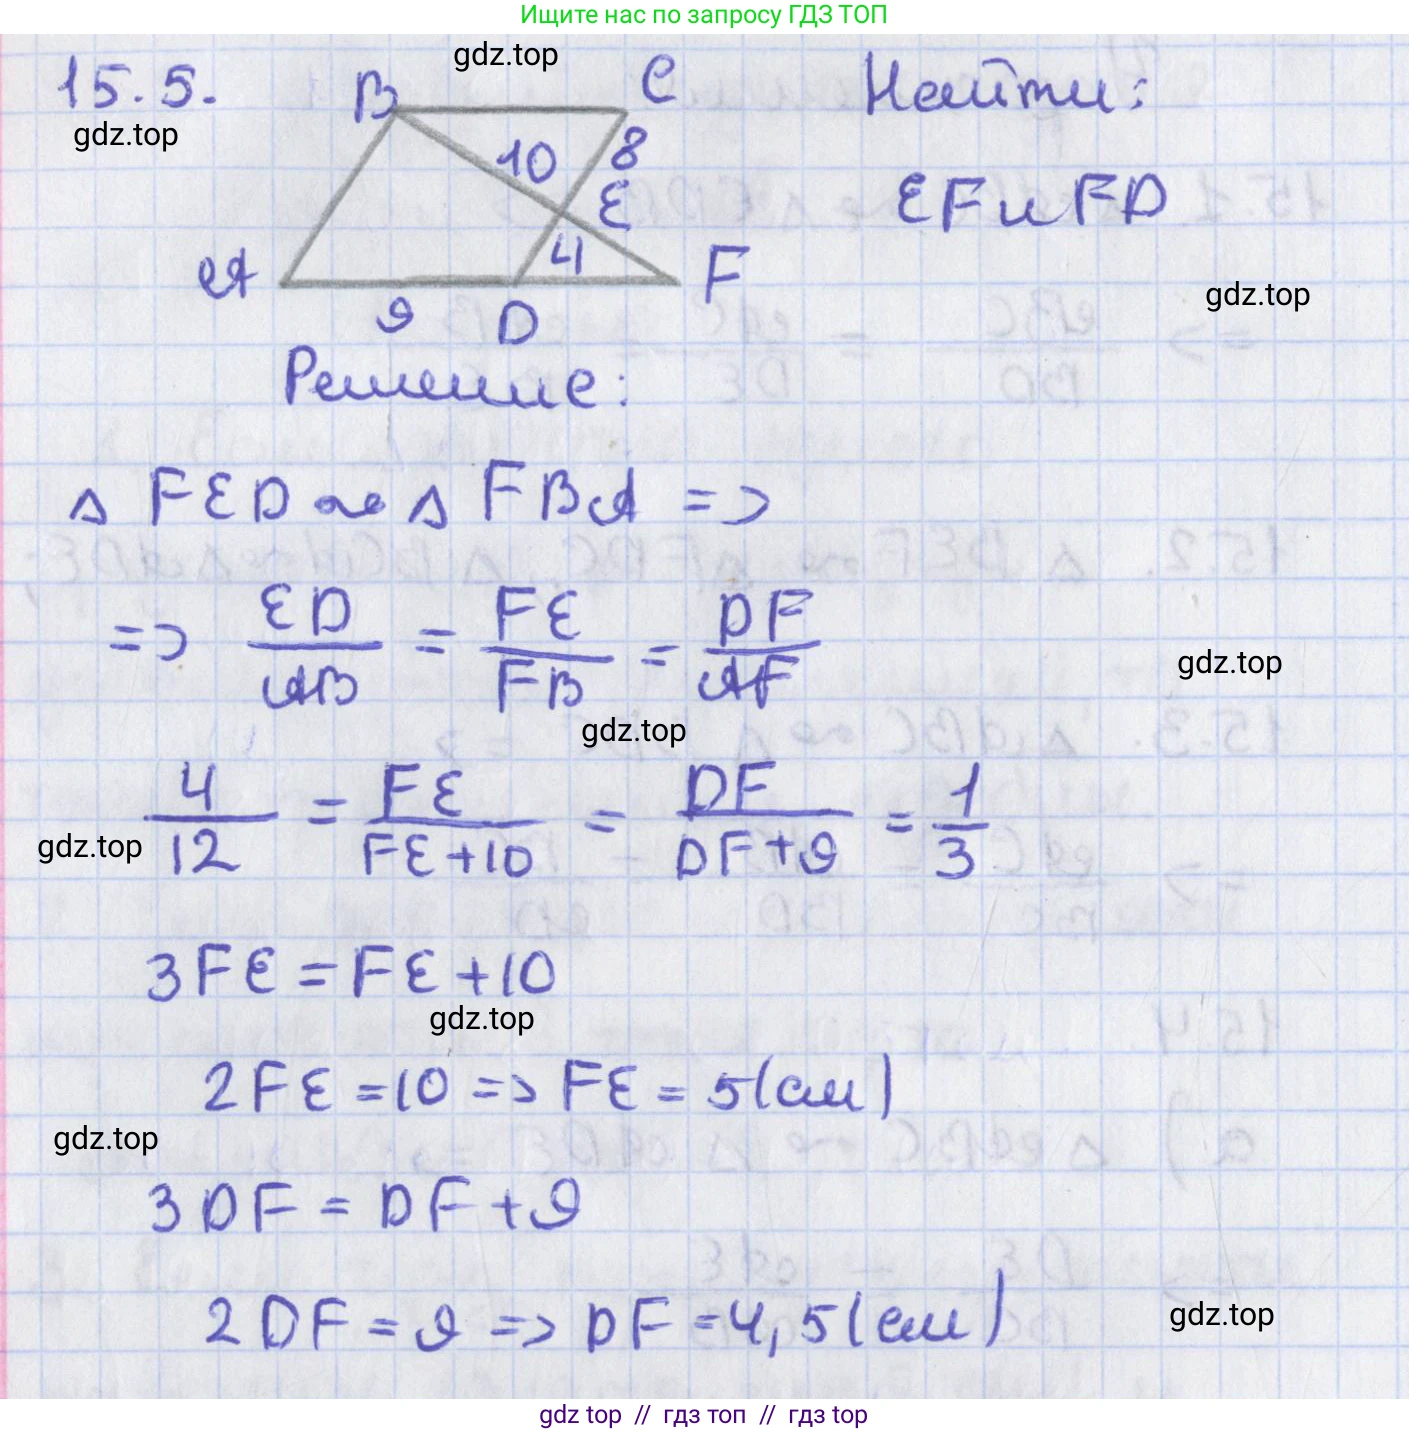 Ищите нас по запросу ГДЗ ТОП
gdz.top
15.5.
gdz.top
B
C
10
8
E
4
A
9
D
F
Найти:
EF и FD
gdz.top
Решение:
△ FED ∾ △ FBA =>
=> ED/AB = FE/FB = DF/AF
gdz.top
gdz.top
4/12 = FE/FE+10 = DF/DF+9 = 1/3
gdz.top
3FE = FE+10
gdz.top
2FE = 10 => FE = 5(см)
gdz.top
3DF = DF+9
2DF = 9 => DF = 4,5(см)
gdz.top
gdz top // гдз топ // гдз top